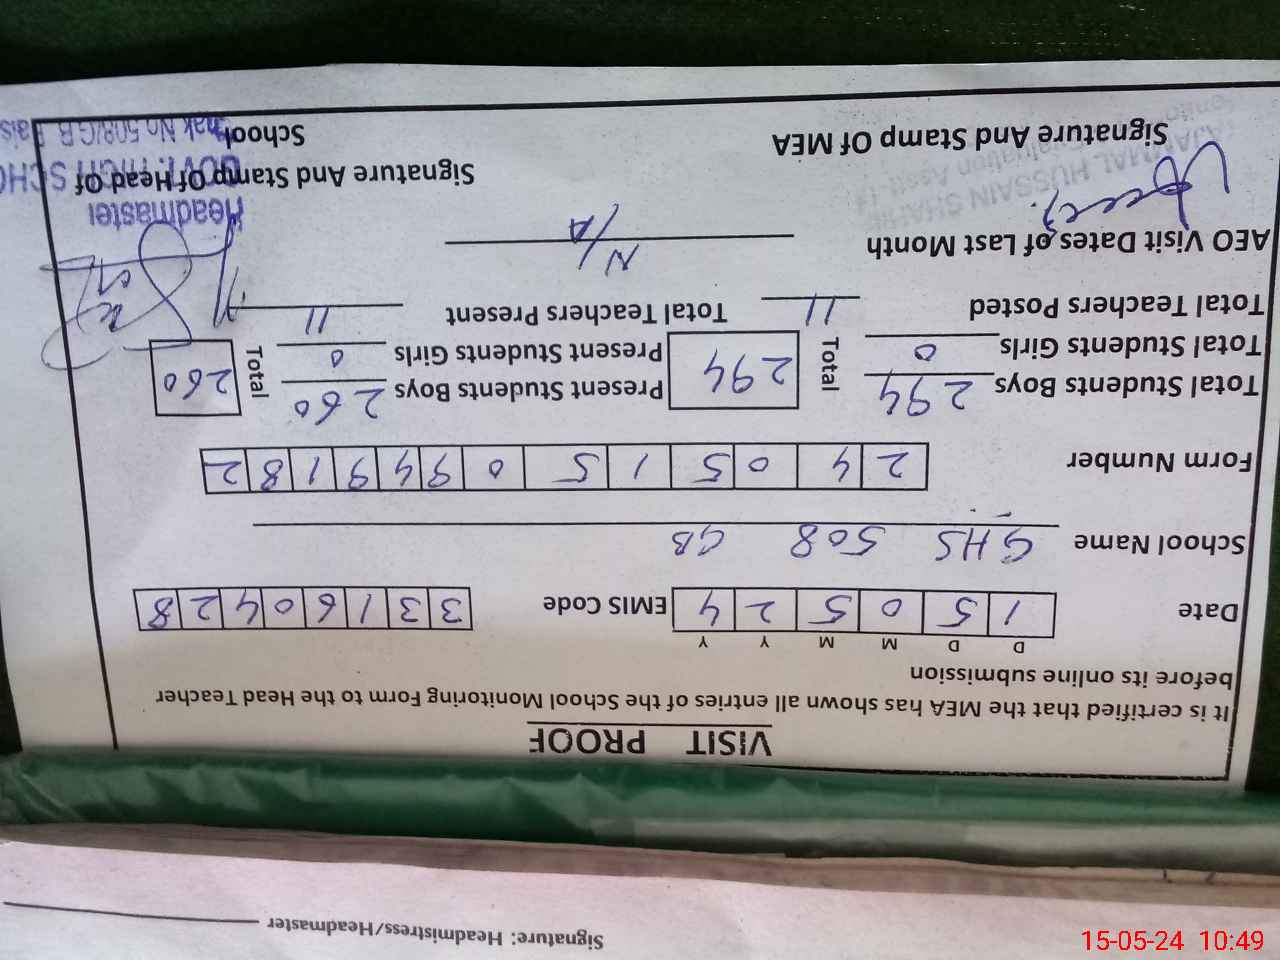 Signature: Headmistress/Headmaster
VISIT PROOF
It is certified that the MEA has shown all entries of the School Monitoring Form to the Head Teacher
before its online submission
D D M M Y Y
Date 1 5 0 5 2 4 EMIS Code 3 3 1 6 0 4 2 8
School Name GHS 508 GB
Form Number 2 4 0 5 1 5 0 9 4 9 1 8 2
Total Students Boys 294 Total 294 Present Students Boys 260 Total 260
Total Students Girls 0 Present Students Girls 0
Total Teachers Posted 11 Total Teachers Present 11
AEO Visit Dates of Last Month N/A
Headmaster
GOVT. HIGH SCHO
Chak No.508/G.B.
HUSSAIN
Signature And Stamp Of MEA Signature And Stamp Of Head Of
School
15-05-24 10:49